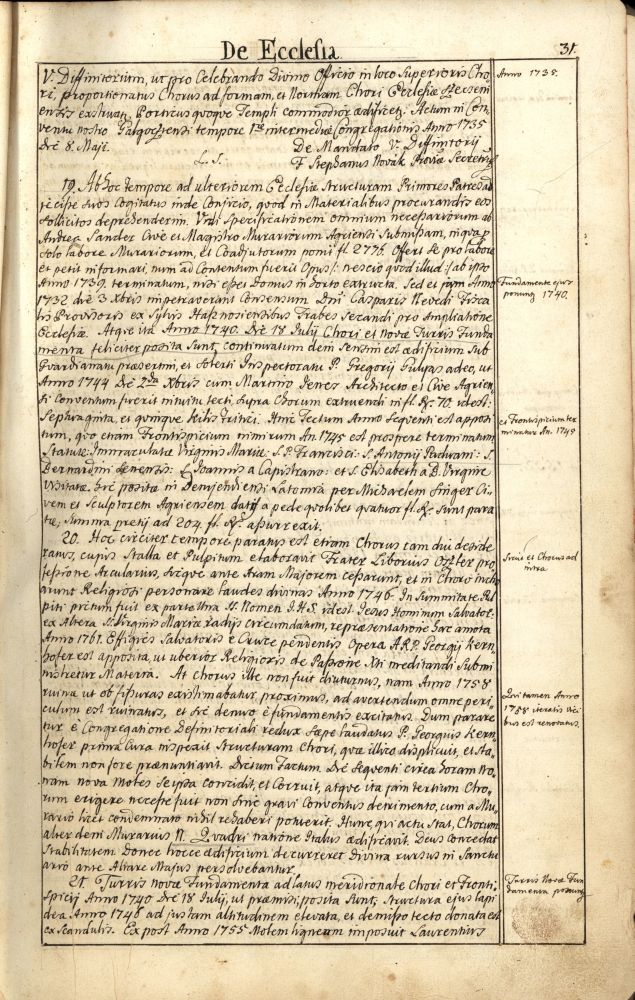 De Ecclesia
31.
V. Diffinitorium, ut pro Celebrando Divino Officio in loco Superioris Cho-
ri, proportionatus Chorus ad formam, et Normam Chori Ecclesiæ
ensis exstruatur, Porticus quoque Templi commodior ædificetur. Actum in Con-
ventu nostro tempore 1æ intermediæ Congregationis Anno 1735
Die 8. Maji.
De Mandato V. Diffinitorij
L. S.
F Stephanus Novak Proviæ Secretarius
19. Ab hoc tempore ad ulteriorem Ecclesiæ Structuram Primores Patres ad-
jecisse suos Cogitatus inde Conjicio, quod in Materialibus procurandis eos
sollicitos deprehenderim. Vidi Specificationem omnium necessariorum ab
Andrea Sander Cive et Magistro Murariorum Agriensi Submissam, in qua p
solo labore Murariorum, et Coadjutorum pomi fl. 2776. Offert se pro labore
et petit informari, num ad Contentum fuerit Opus /: nescio quod illud :/ ab ipso
Anno 1739. terminatum, nisi esset Domus in horto extructa. Sed et jam Anno
1732 die 3 Xbris impetraverant Consensum Dni Casparis Nevedi Fisca-
lis Provisoris ex Sylvis Hasznosiensibus Trabes Secandi pro Ampliatione
Ecclesiæ. Atque ita Anno 1740. Die 18 Julij Chori et Novæ Turris Funda-
menta feliciter posita Sunt, continuatum dein Sensim est ædificium Sub
Gvardianatu præsertim, et Solerti Inspectoratu P. Gregorij Gulyas adeo, ut
Anno 1744 Die 2da Xbris cum Martino Architecto et Cive Agrien-
si Conventum fuerit intuitu tecti supra Chorum extruendi in fl. R. 70. id est
Septuaginta, et quinque kilis tritici. Hinc Tectum Anno Sequenti est apposi-
tum, quo etiam Frontispicium nimirum An. 1745 est prospere terminatum
Statuæ: Immaculatæ Virginis Mariæ: S. P. Francisci: S. Antonij Paduani: S.
Bernardini Senensis: S. Joannis a Capistrano: et S. Elisabeth a B. Virgine
Visitatæ. hic positæ in Demjendiensi Latomia per Michaelem Singer Ci-
vem et Sculptorem Agriensem a pede quolibet quatuor fl. R. Sunt para-
tæ, summa pretij ad 204 fl. R. assurrexit.
20. Hoc circiter tempore paratus est etiam Chorus tam diu deside-
ratus, cujus Stalla et Pulpitum elaboravit Frater Liborius pro-
fessione Arcularius, sicque ante Aram Majorem cessarunt, et in Choro incho-
arunt Religiosi personare laudes divinas Anno 1746. In Summitate Pul-
piti pictum fuit ex parte una SS. Nomen I.H.S. id est Jesus Hominum Salvator:
ex Altera SS. Virginis Mariæ radijs circumdatum, repræsentatione hac amota
Anno 1761. Effigies Salvatoris e Cruce pendentis Opera A.R.P. Georgij Kern-
hofer est apposita, ut uberior Religiosis de Passione Xti meditandi Submi-
nistretur Materia. At chorus iste non fuit diuturnus, nam Anno 1758
ruina ut ob fissuras existimabatur, proximus, ad avertendum omne peri-
culum est ruinatus, et sic denuo e fundamentis excitatus. Dum parare-
tur e Congregatione Definitoriali redux sæpe laudatus P. Georgius Kern-
hofer prima Cura inspexit Structuram Chori, quæ illico displicuit, et sta-
bilem non fore prænuntiavit. Dictum Factum. Die Sequenti circa horam No-
nam nova Moles Seipsa concidit, et Corruit, atque ita jam tertium Cho-
rum erigere necesse fuit non sine gravi Conventus detrimento, cum a Mu-
rario licet condemnato nihil rehaberi potuerit. Hunc, qui actu stat, Chorum
alter dein Murarius N. Quadri natione Italus ædificavit. Deus concedat
Stabilitatem Donec hocce ædificium decurreret Divina rursus in Sanctu-
ario ante Altare Majus persolvebantur.
21. Turris novæ Fundamenta ad latus meridionale Chori et Fronti-
spicij Anno 1740 Die 18 Julij, ut præmisi, posita Sunt, Structura ejus lapi-
dea Anno 1748 ad justam altitudinem elevata, et demisso tecto donata est
ex Scandulis. Ex post Anno 1755 Molem ligneam imposuit Laurentius
Anno 1735.
Fundamenta ejus
ponuntur 1740.
et Frontispicium ter-
minatur An. 1745
Sicut et Chorus ad
intra
Qui tamen Anno
1758 iteratis vici-
bus est renovatus.
Turris Novæ Fun-
damenta ponuntur